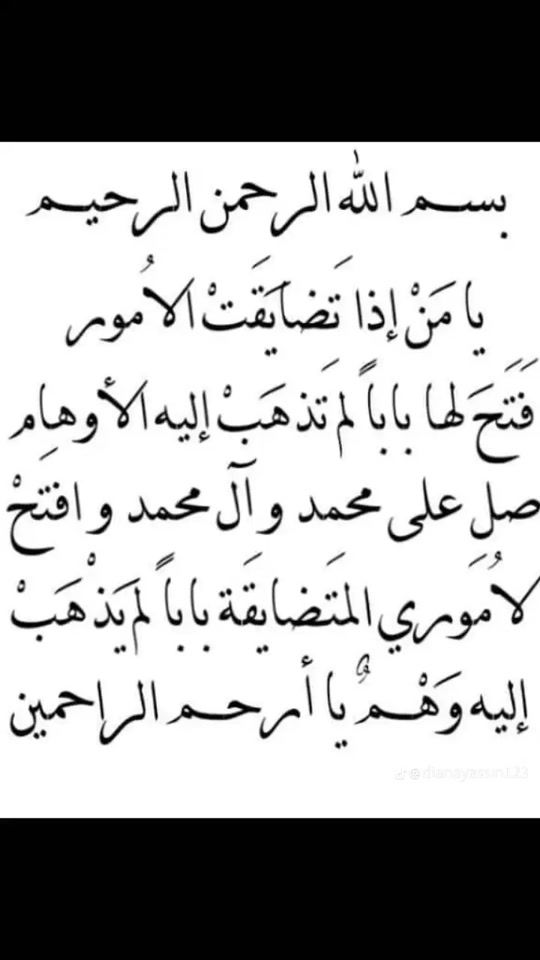 بسم الله الرحمن الرحيم
يا مَنْ إذا تَضايَقَتْ الاُمور
فَتَحَ لها باباً لم تَذهَبْ إليه الأوهام
صل على محمد وآل محمد وافتَحْ
لاُموَري المتَضايقَة باباً لم يَذْهَبْ
إليه وَهْمٌ يا أرحم الراحمين
@dianayassin123